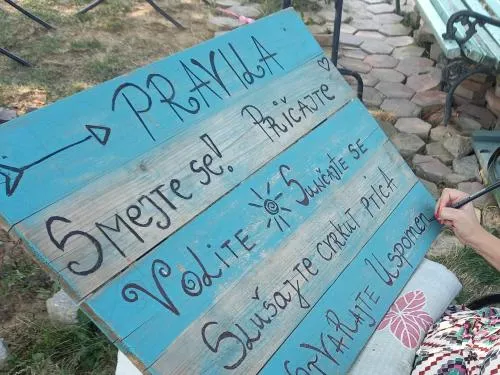 PRAVILA
Smejte se! Pričajte
Volite Sunčajte se
Slušajte cvrkut ptica
Stvarajte Uspomen